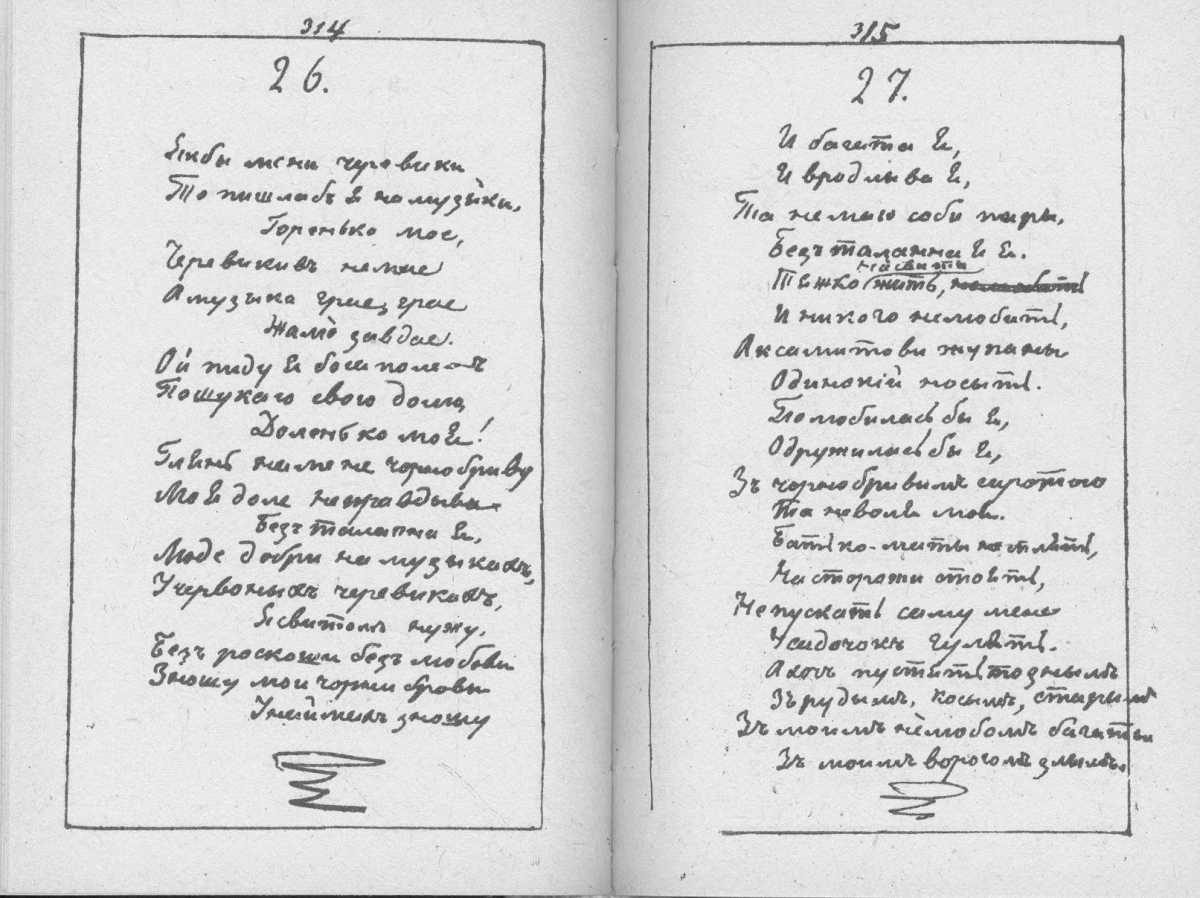 314
26.
Якбы мени черевики
То пишлабъ я на музыки,
Горенько мое,
Черевикивъ немае
А музыка грае, грае
Жалю завдае.
Ой пиду я боса полемъ
Пошукаю свою долю,
Доленько моя!
Глянь на мене чорнобриву
Моя доле неправдыва
Безталанна я.
Люде добри на музыкахъ,
У червоныхъ черевикахъ,
Я свитомъ нужу.
Безъ роскоши безъ любови
Зношу мои чорни бровы
У наймахъ зношу
315
27.
И багата я,
И вродлыва я,
Та не маю соби пары,
Безъталанна я.
на свити
Тяжко жить,
И никого нелюбить,
Аксамитови жупаны
Одинокій носыть.
Полюбилась бы я,
Одружилась бы я,
Зъ чорнобривымъ сиротою
Та не воля моя.
Батько-маты не сплять,
На сторожи стоять,
Не пускать саму мене
У садочокъ гулять.
А хоч пустить то зъ нымъ
Зъ рудымъ, косымъ, старымъ
Зъ моимъ нелюбомъ багатым
Зъ моимъ ворогомъ злымъ.